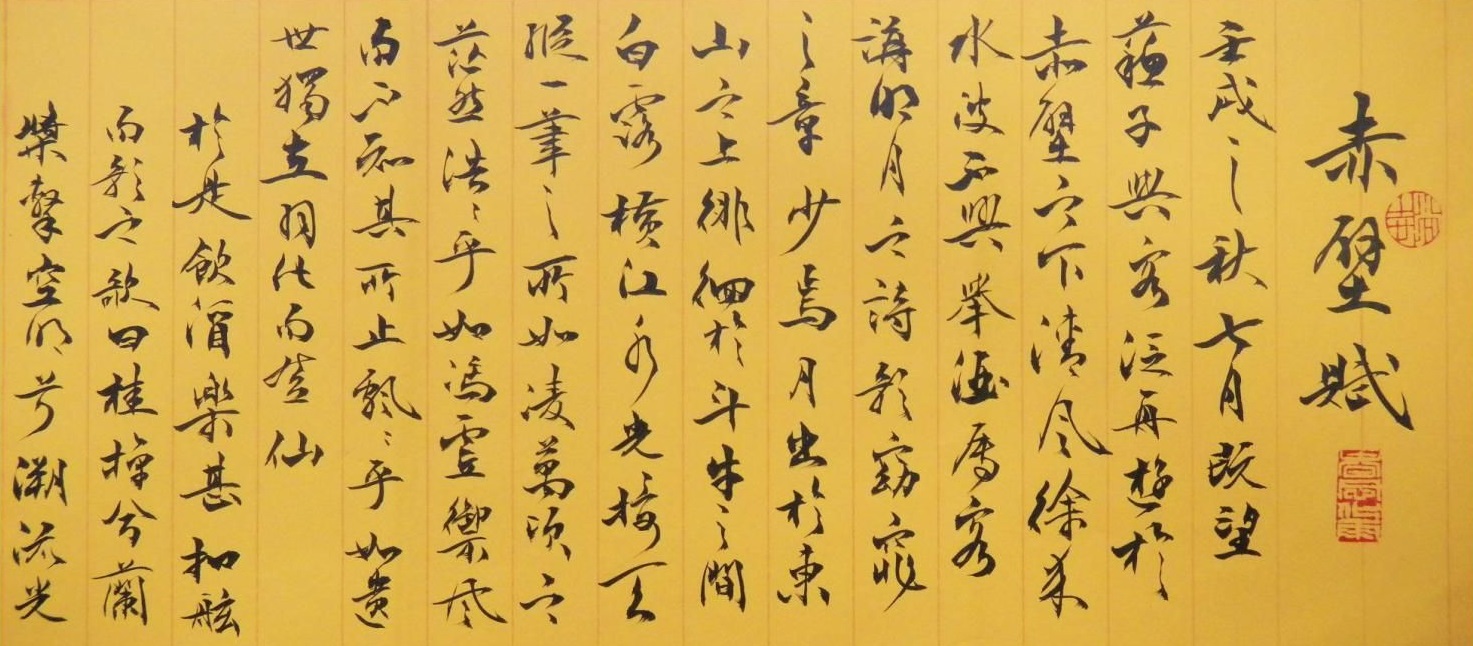 赤壁賦
壬戌之秋七月既望
蘇子與客泛舟遊於
赤壁之下清風徐來
水波不興舉酒屬客
誦明月之詩歌窈窕
之章少焉月出於東
山之上徘徊於斗牛之間
白露橫江水光接天
縱一葦之所如凌萬頃之
茫然浩浩乎如馮虛御風
而不知其所止飄飄乎如遺
世獨立羽化而登仙
於是飲酒樂甚扣舷
而歌之歌曰桂棹兮蘭
槳擊空明兮溯流光